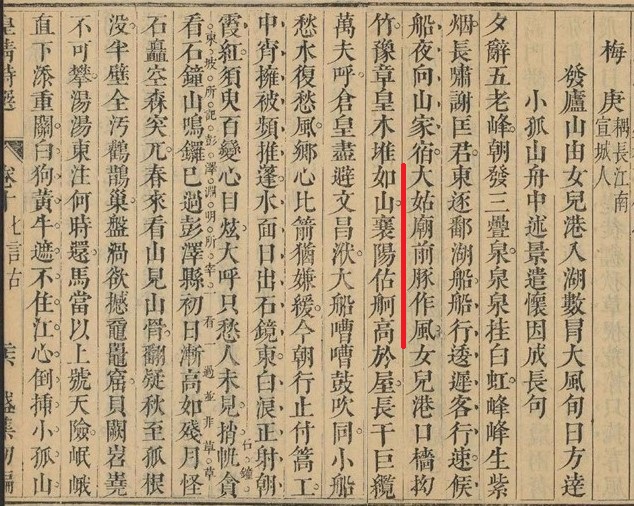 梅庚 耦長江南宣城人
發廬山由女兒港入湖數冒大風旬日方達
小孤山舟中述景遣懷因成長句
夕辭五老峰朝發三疊泉泉泉挂白虹峰峰生紫
烟長嘯謝匡君東逐鄱湖船船行透遲客行速候
船夜向山家宿大姑廟前豚作風女兒港口檣抝
竹豫章皇木堆如山襄陽估舸高於屋長干巨纜
萬夫呼倉皇盡避文昌洑大船嘈嘈鼓吹同小船
愁水復愁風鄉心比箭猶嫌緩今朝行止付篙工
中宵擁被頻推蓬水面日出石鏡東白浪正射朝
霞紅須臾百變心目炫大呼只愁人未見捎帆貪
石鐘東坡所記彭澤淵明所宰一看過並非草草
看石鐘山鳴鑼已過彭澤縣初日漸高如殘月怪
石矗空森突兀春來看山見山骨翻疑秋至孤根
没半壁全汚鸛鶴巢盤渦欲撼黿鼉窟貝闕岧嶤
不可攀湯湯東注何時還馬當以上號天險岷峨
直下添重關白狗黃牛遮不住江心倒揷小孤山
皇清詩選 七言古